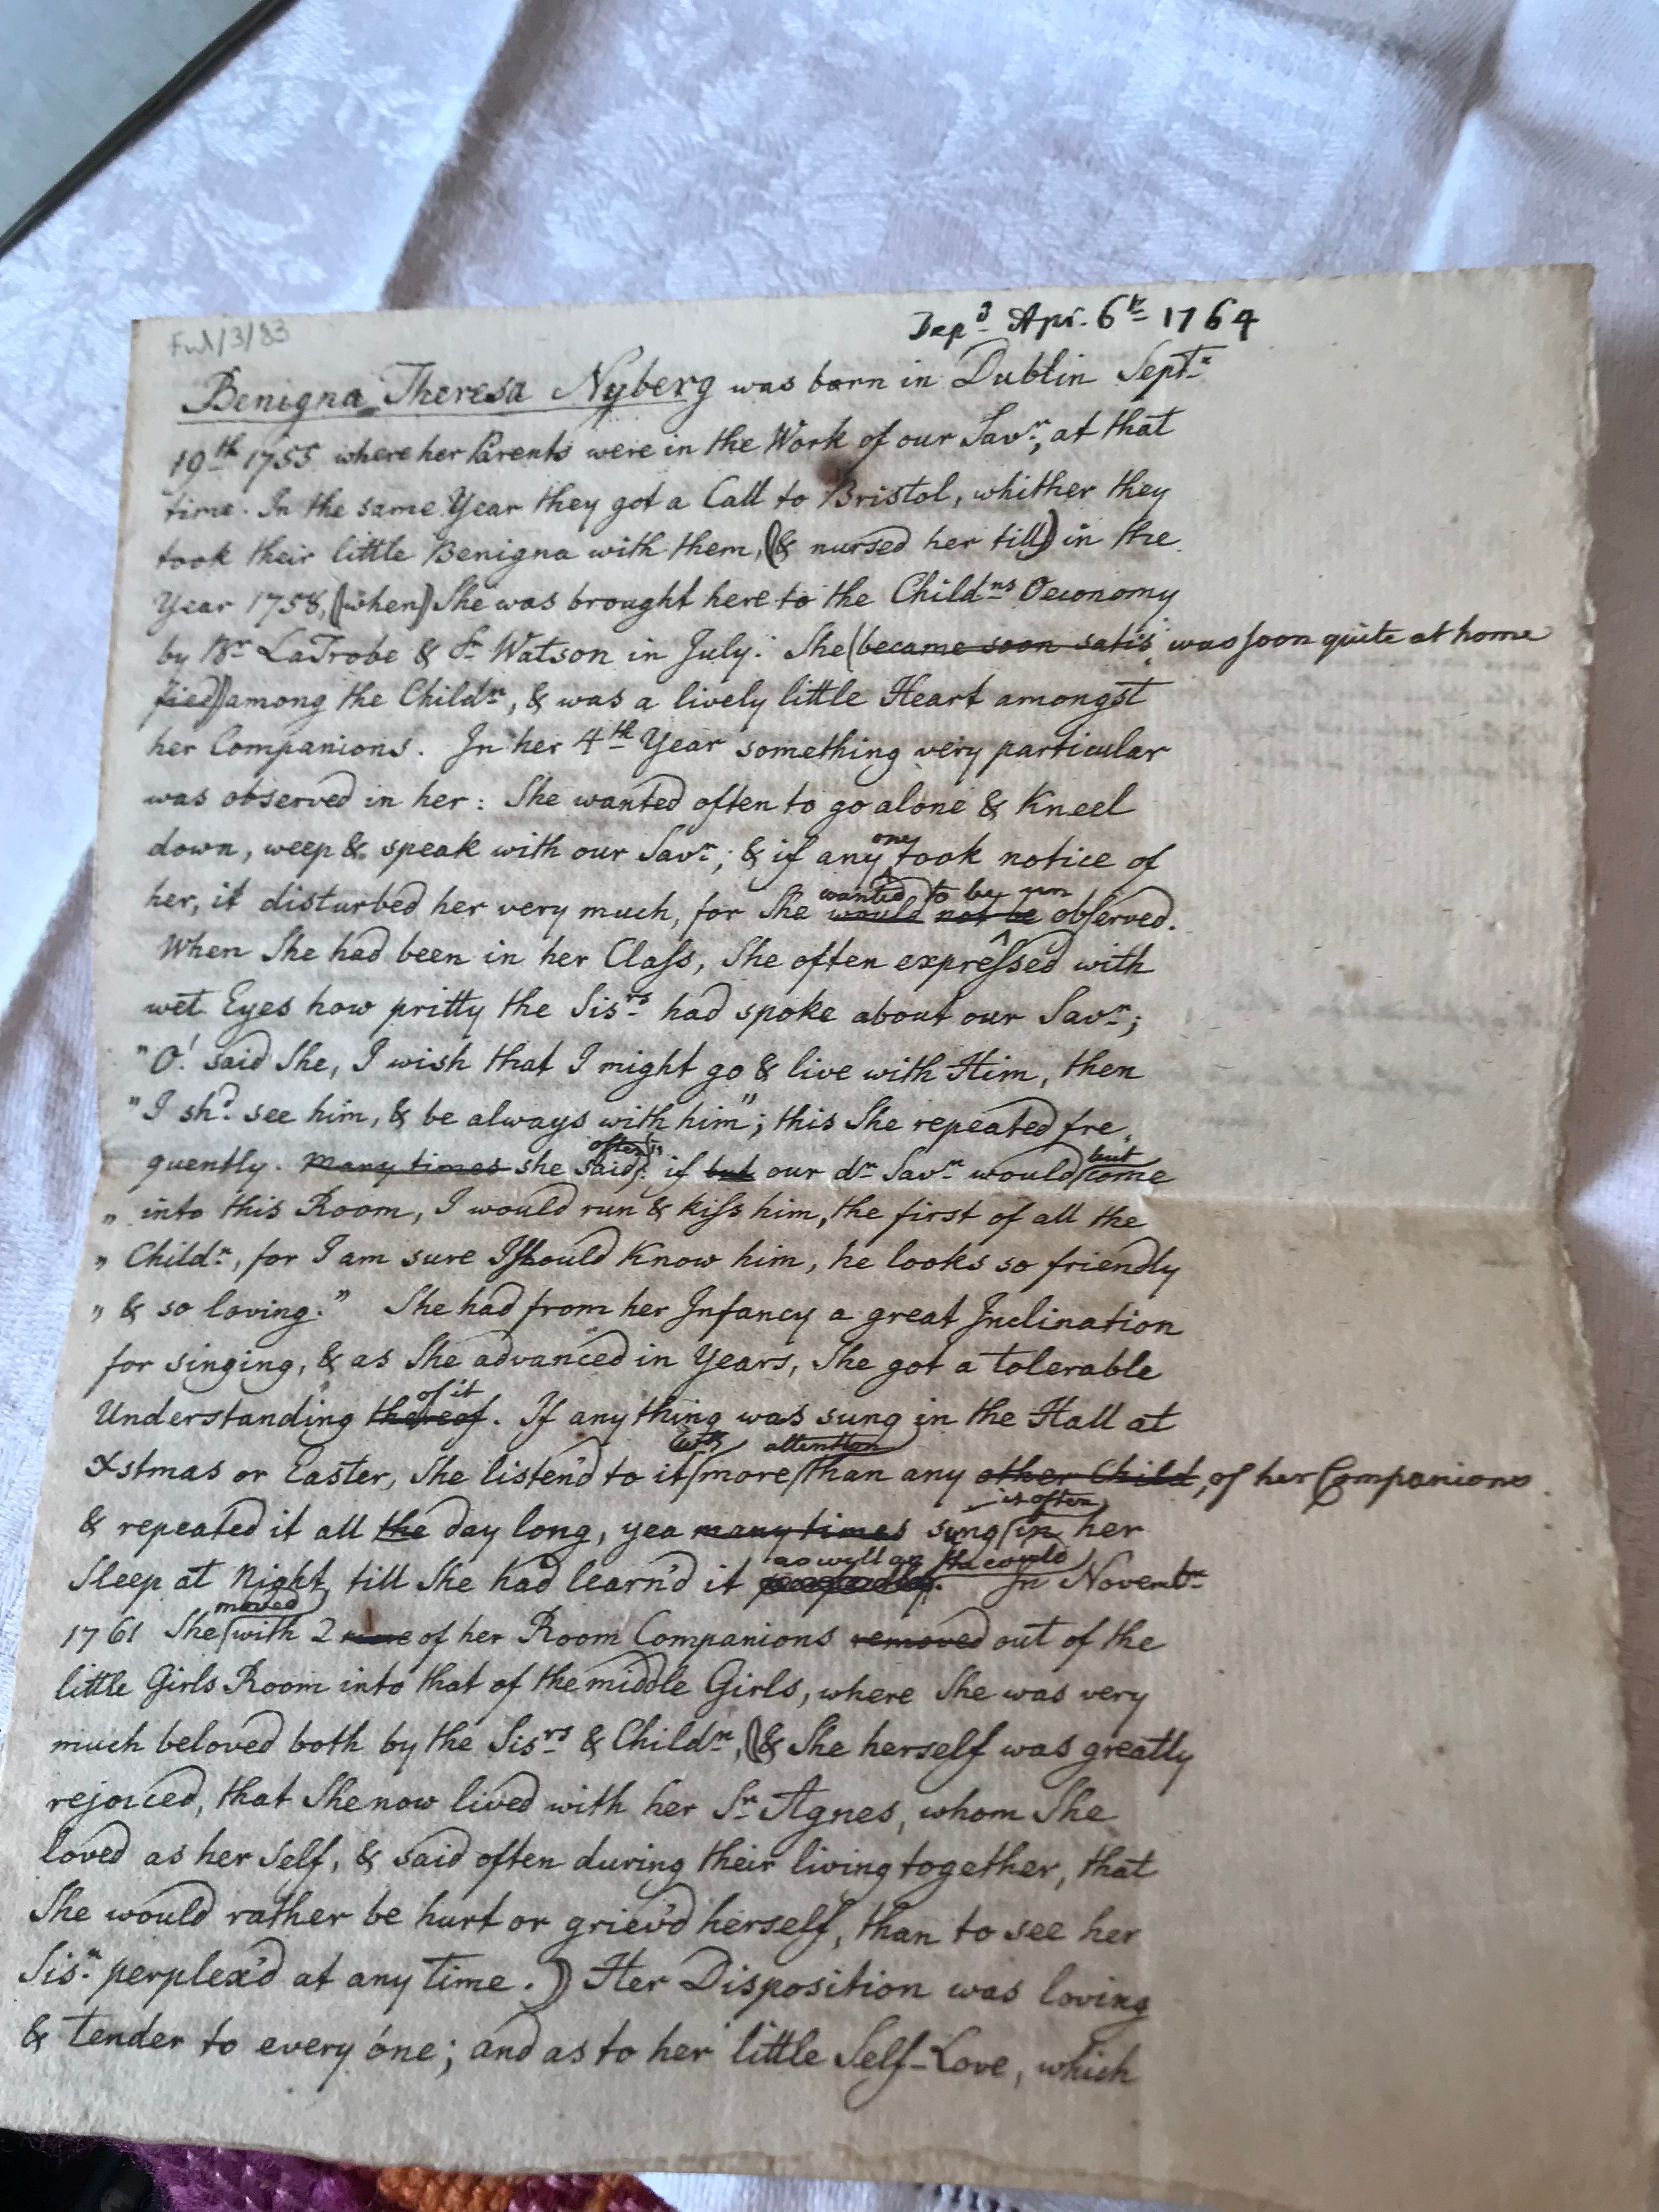 Ful/3/83
Dep.d Apr. 6th 1764
Benigna Theresa Nyberg was born in Dublin Septr
19th 1755 where her Parents were in the Work of our Savr, at that
time. In the same Year they got a Call to Bristol, whither they
took their little Benigna with them, (& nursed her till) in the
Year 1758, (when) She was brought here to the Childns Oeconomy
by Br LaTrobe & Sr Watson in July. She (became soon satis was soon quite at home
fied) among the Childn, & was a lively little Heart amongst
her Companions. In her 4th Year something very particular
was observed in her: She wanted often to go alone & Kneel
down, weep & speak with our Savr; & if any one took notice of
her, it disturbed her very much, for She would not be wanted to be un observed.
When She had been in her Class, She often expressed with
wet Eyes how pritty the Sisrs had spoke about our Savr;
"O! said She, I wish that I might go & live with Him, then
"I shd see him, & be always with him"; this She repeated fre„
quently. Many times she said often: "if but our dr Savr would but come
„ into this Room, I would run & kiss him, the first of all the
„ Childn, for I am sure I should Know him, he looks so friendly
„ & so loving." She had from her Infancy a great Inclination
for singing, & as She advanced in Years, She got a tolerable
Understanding thereof of it. If any thing was sung in the Hall at
Xstmas or Easter, She listen'd to it with more attention than any other Child, of her Companions.
& repeated it all the day long, yea many times sung it often in her
Sleep at Night, till She had learn'd it as well as she could. In Novembr
1761 She moved with 2 more of her Room Companions removed out of the
little Girls Room into that of the middle Girls, where She was very
much beloved both by the Sisrs & Childn, (& She herself was greatly
rejoiced, that She now lived with her Sr Agnes, whom She
loved as her self, & said often during their living together, that
She would rather be hurt or griev'd herself, than to see her
Sisr perplex'd at any time.) Her Disposition was loving
& tender to every one; and as to her little Self-Love, which